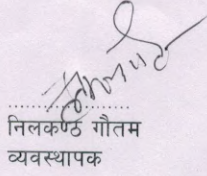 ....................
निलकण्ठ गौतम
व्यवस्थापक